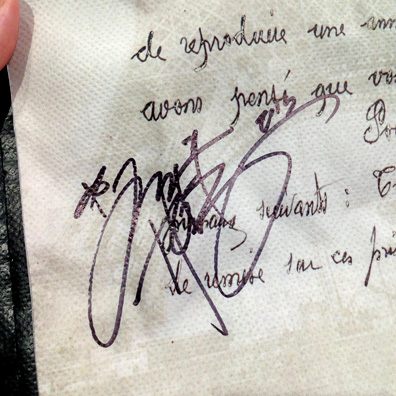 de reproduire une ann
avons pensé que vo
Po
suivants :
de remise sur ces pri